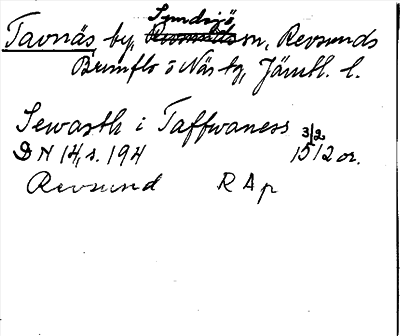 Sundsjö,
Tavnäs by, on, Revsunds
Brunflo o Näs tg, Jämtl. l.
Sewasth i Taffwaness 3/2
DN 14, s. 194 1512 or.
Revsund R A p